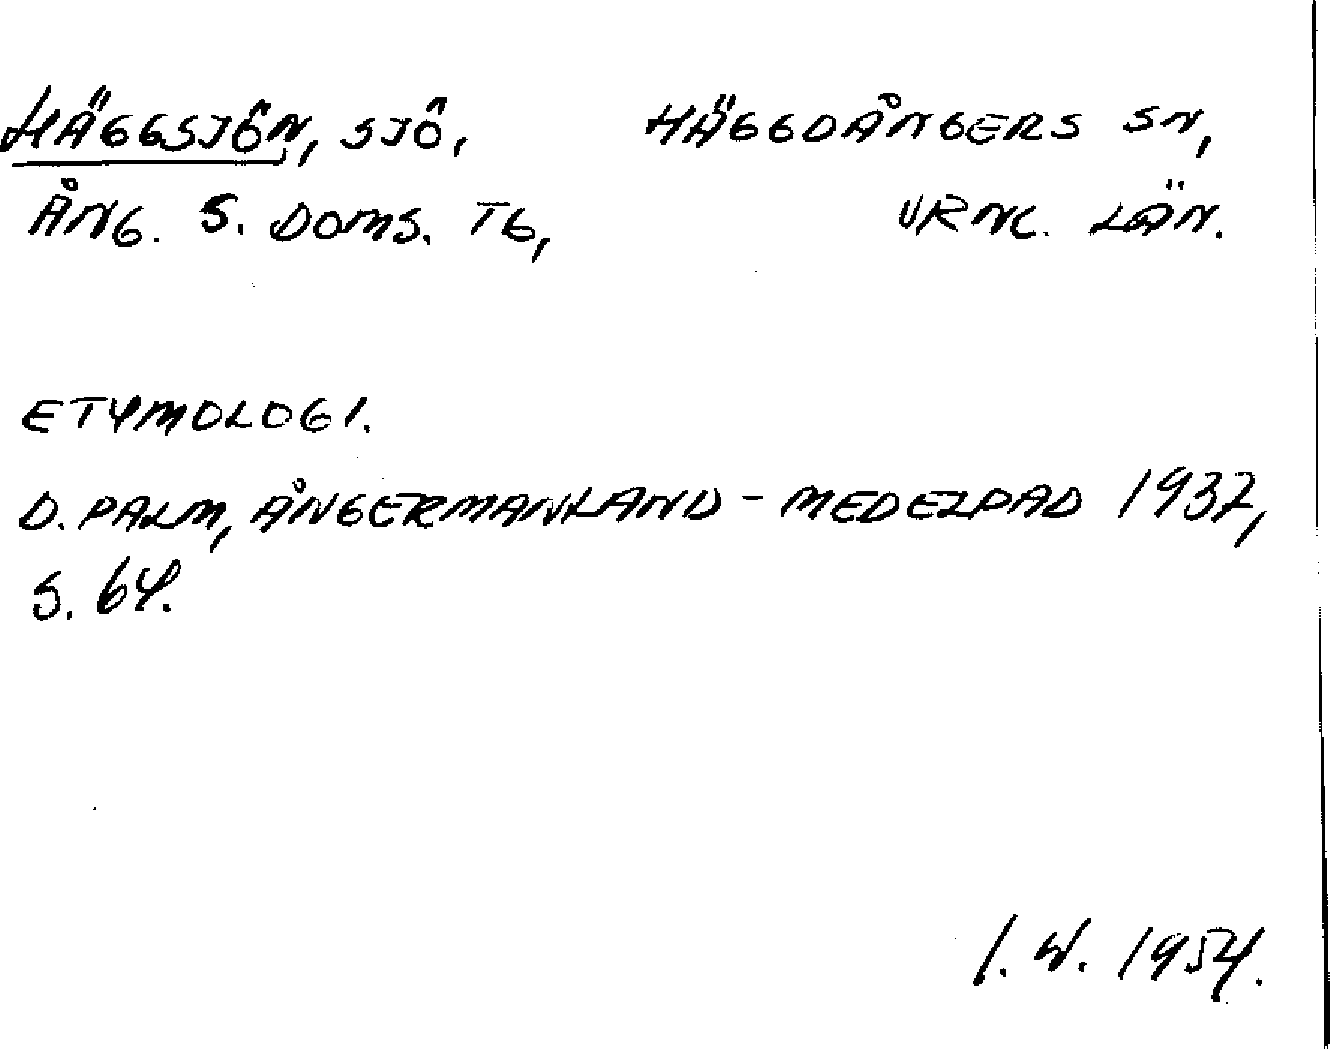 HÄGGSJÖN, SJÖ, HÄGGDÅNGERS SN,
ÅNG. S. DOMS. TG, VRNL. LÄN.
ETYMOLOGI.
D. PALM, ÅNGERMANLAND - MEDELPAD 1937,
S. 64.
I. W. 1954.